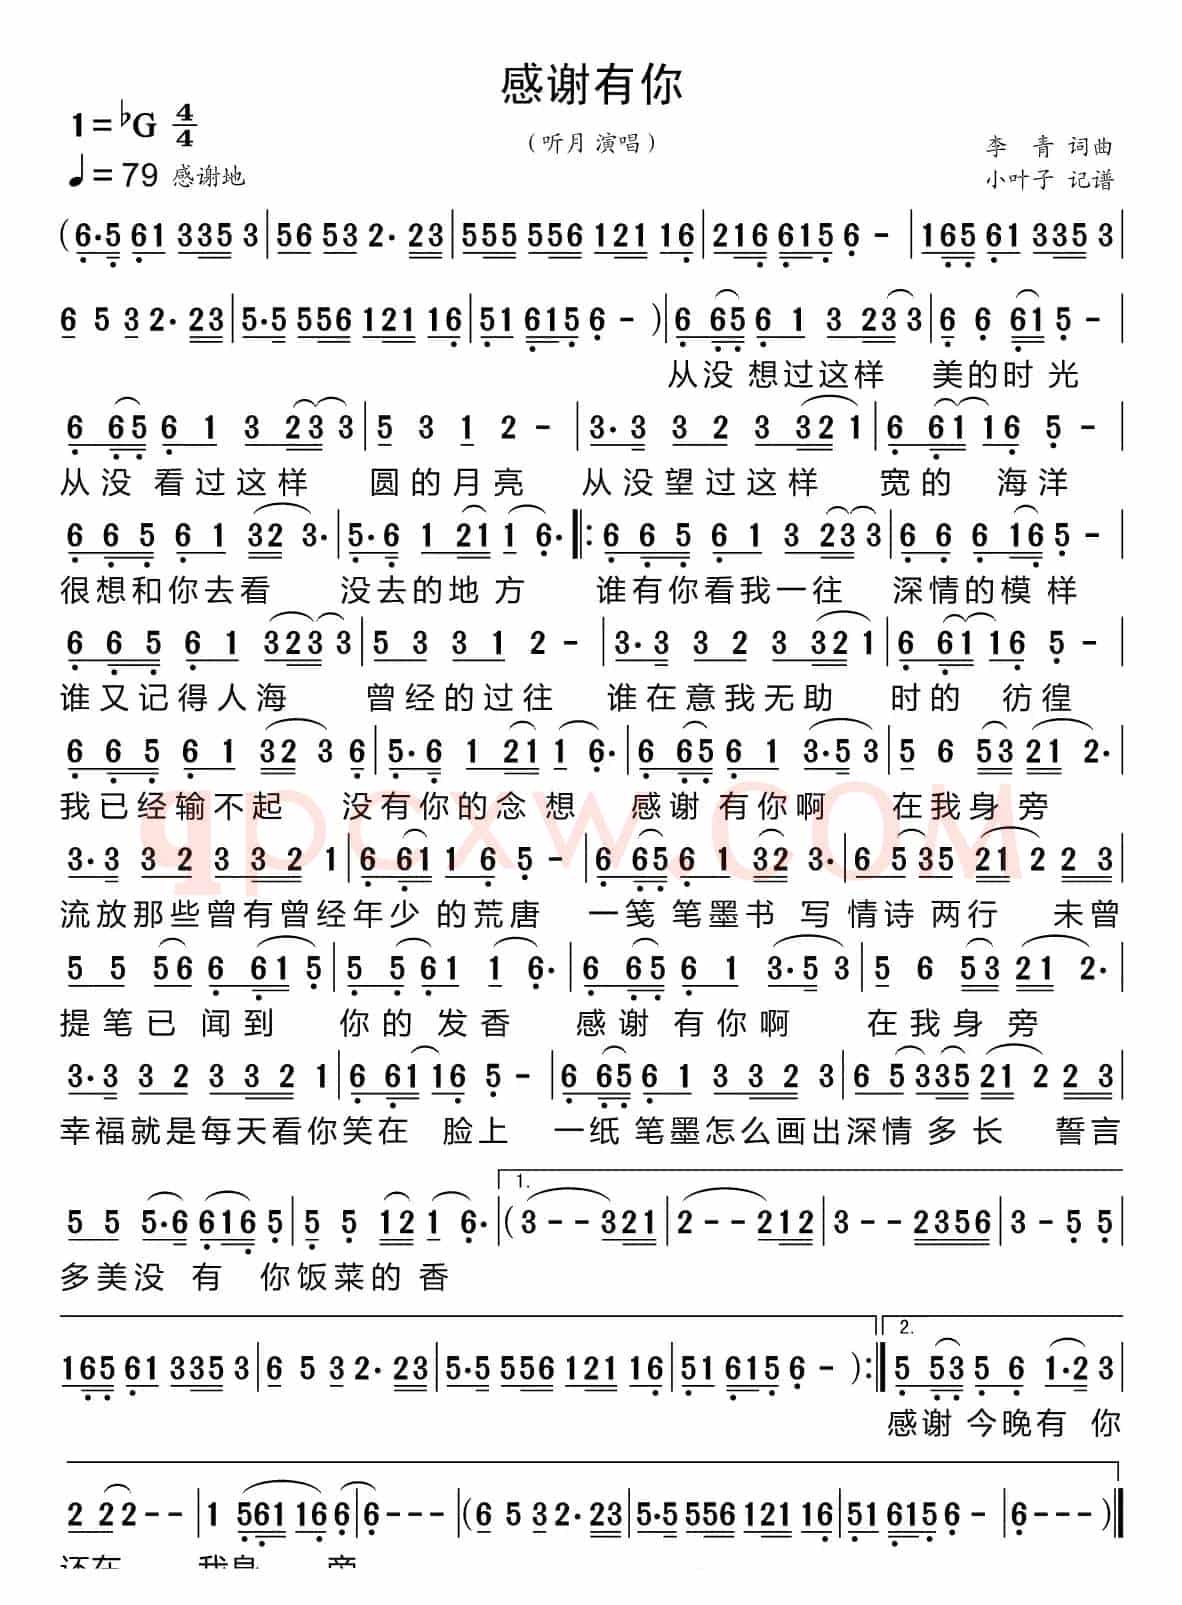 感谢有你
1=♭G 4/4
(听月 演唱)
李 青 词曲
♩=79 感谢地
小叶子 记谱
(6·5 61 335 3|56 53 2· 23|555 556 121 16|216 615 6 -|165 61 335 3|
6 5 3 2· 23|5·5 556 121 16|51 615 6 - )|6 65 6 1 3 23 3|6 6 61 5 -|
从没 想过这样 美的时 光
6 65 6 1 3 23 3|5 3 1 2 -|3·3 3 2 3 321|6 61 16 5 -|
从没 看过这样 圆的月亮 从没望过这样 宽的 海洋
6 6 5 6 1 32 3·|5·6 1 21 1 6·‖:6 6 5 6 1 3 23 3|6 6 6 16 5 -|
很想和你去看 没去的地 方 谁有你看我一往 深情的模 样
6 6 5 6 1 323 3|5 3 3 1 2 -|3·3 3 2 3 321|6 61 16 5 -|
谁又记得人海 曾经的过往 谁在意我无助 时的 彷徨
6 6 5 6 1 32 3 6|5·6 1 21 1 6·|6 65 6 1 3·5 3|5 6 53 21 2·|
我已经输不起 没有你的念 想 感谢 有你啊 在我身 旁
3·3 3 2 3 3 2 1|6 61 1 6 5 -|6 65 6 1 32 3·|6 5 35 21 2 2 3|
流放那些曾有曾经年少 的荒唐 一笺 笔墨书 写 情诗 两行 未曾
5 5 56 6 61 5|5 5 61 1 6·|6 65 6 1 3·5 3|5 6 53 21 2·|
提笔已 闻到 你的 发香 感谢 有你啊 在我身 旁
3·3 3 2 3 3 2 1|6 61 16 5 -|6 65 6 1 3 3 2 3|6 5 335 21 2 2 3|
幸福就是每天看你笑在 脸上 一纸 笔墨怎么画出深情 多 长 誓言
1.
5 5 5·6 616 5|5 5 12 1 6·|(3 - - 321|2 - - 212|3 - - 2356|3 - 5 5|
多美没 有 你饭菜的 香
2.
165 61 335 3|6 5 3 2· 23|5·5 556 121 16|51 615 6 - ):‖5 53 5 6 1·2 3|
感谢 今晚有 你
2 22 - -|1 561 16 6|6 - - -|(6 5 3 2· 23|5·5 556 121 16|51 615 6 -|6 - - -)‖
还在 我身 旁
qpcxw.COM